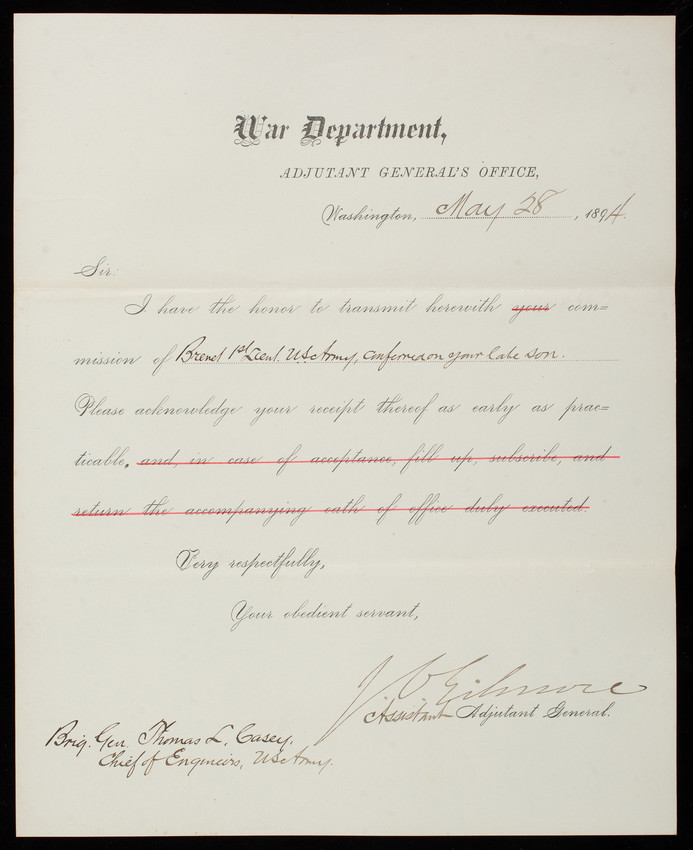 War Department,
ADJUTANT GENERAL'S OFFICE,
Washington, May 28, 1894.
Sir:
I have the honor to transmit herewith your com=
mission of Brevet 1st Lieut. U.S. Army, conferred on your late son.
Please acknowledge your receipt thereof as early as prac=
ticable, and, in case of acceptance, fill up, subscribe, and
return the accompanying oath of office duly executed.
Very respectfully,
Your obedient servant,
J C Gilmore
Assistant Adjutant General.
Brig. Gen. Thomas L. Casey,
Chief of Engineers, U.S. Army.